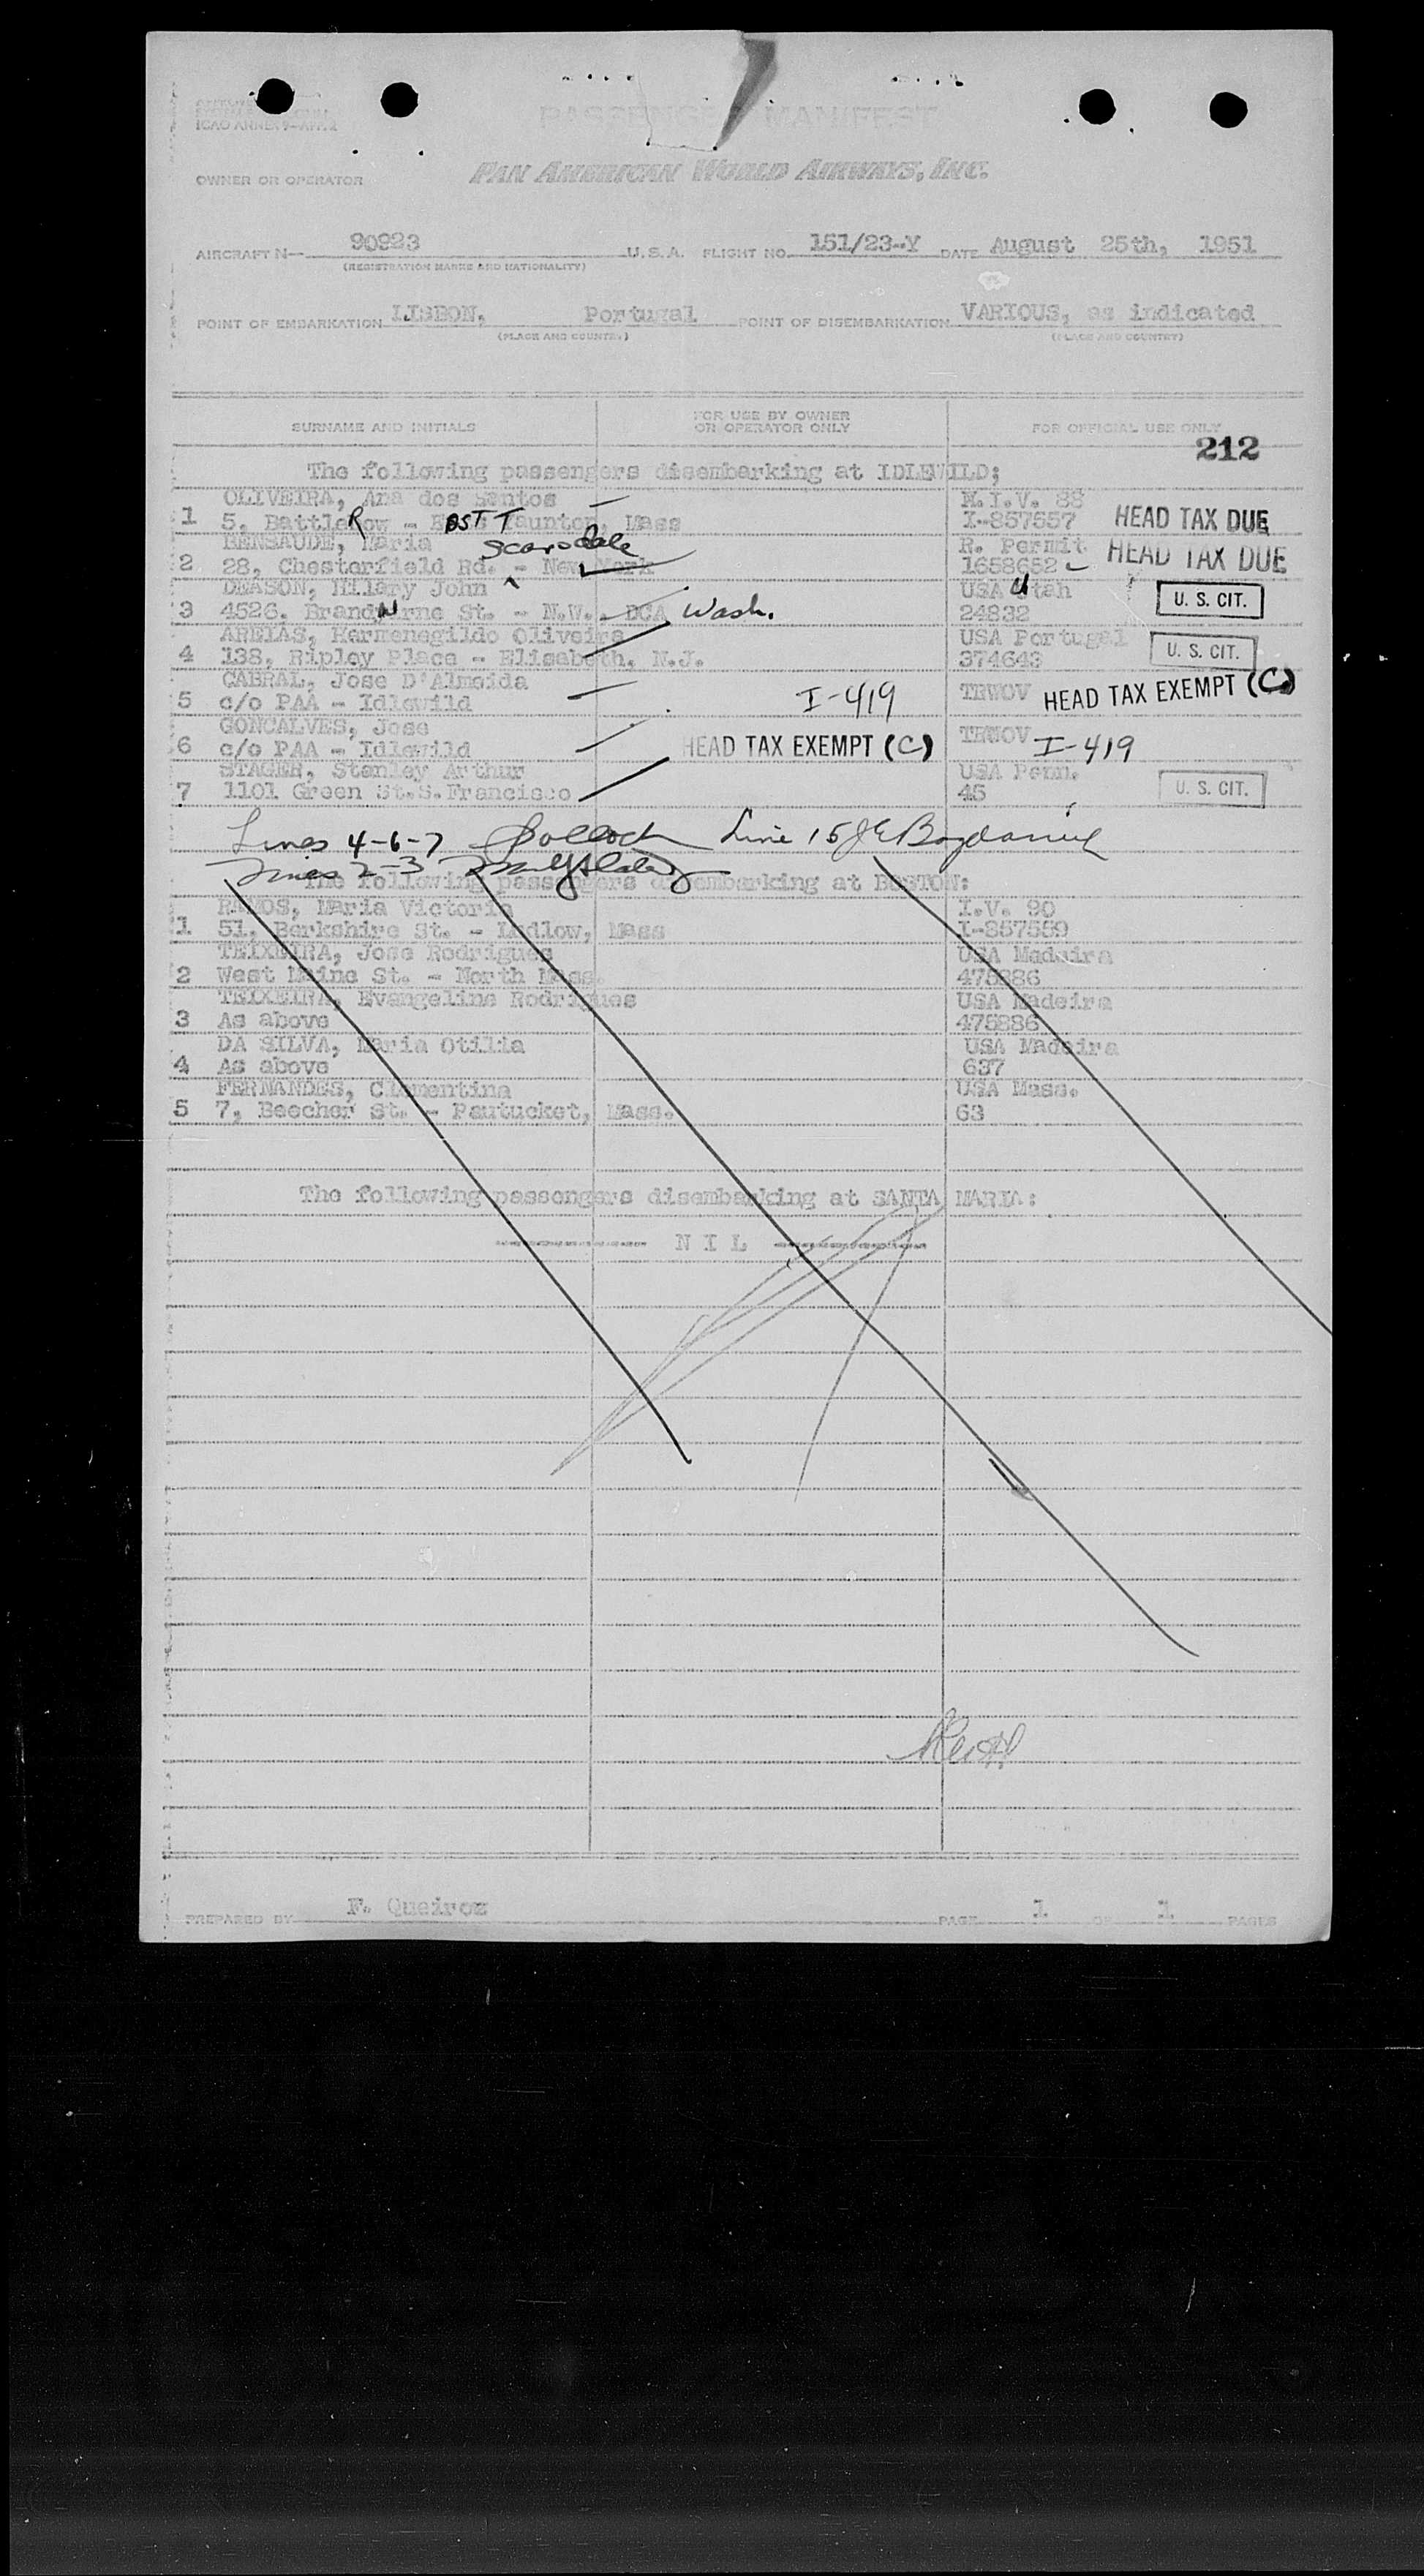 ICAO ANNEX 9-APP. 2
PASSENGER MANIFEST
OWNER OR OPERATOR PAN AMERICAN WORLD AIRWAYS, INC.
AIRCRAFT N— 90923 U.S.A. FLIGHT NO. 151/23-Y DATE August 25th, 1951
(REGISTRATION MARKS AND NATIONALITY)
POINT OF EMBARKATION LISBON, Portugal POINT OF DISEMBARKATION VARIOUS, as indicated
(PLACE AND COUNTRY) (PLACE AND COUNTRY)
SURNAME AND INITIALS FOR USE BY OWNER OR OPERATOR ONLY FOR OFFICIAL USE ONLY
212
The following passengers disembarking at IDLEWILD;
OLIVEIRA, Ana dos Santos N.I.V. 88
1 5, Battle Row - East Taunton, Mass I-857557 HEAD TAX DUE
BENSAUDE, Maria Scarsdale R. Permit HEAD TAX DUE
2 28, Chesterfield Rd. - New York 1658682
DEASON, Hilary John USA Utah U. S. CIT.
3 4526. Brandywne St. - N.W., DCA Wash. 24832
AREIAS, Hermenegildo Oliveira USA Portugal U. S. CIT.
4 138, Ripley Place - Elisabeth, N.J. 374643
CABRAL, Jose D'Almeida TRWOV HEAD TAX EXEMPT (C)
5 c/o PAA - Idlewild I-419
GONCALVES, Jose TRWOV I-419
6 c/o PAA - Idlewild HEAD TAX EXEMPT (C)
STAGER, Stanley Arthur USA Penn. U. S. CIT.
7 1101 Green St.S.Francisco 45
Lines 4-6-7 Pollock Line 15
Lines 2-3
The following passengers disembarking at BOSTON:
RAMOS, Maria Victoria I.V. 90
1 51, Berkshire St. - Ludlow, Mass I-857559
TEIXEIRA, Jose Rodrigues USA Madeira
2 West Maine St. - North Mass. 475886
TEIXEIRA, Evangeline Rodrigues USA Madeira
3 As above 475886
DA SILVA, Maria Otilia USA Madeira
4 As above 637
FERNANDES, Clementina USA Mass.
5 7, Beecher St. - Pautucket, Mass. 63
The following passengers disembarking at SANTA MARIA:
N I L
PREPARED BY F. Queiroz PAGE 1 OF 1 PAGES